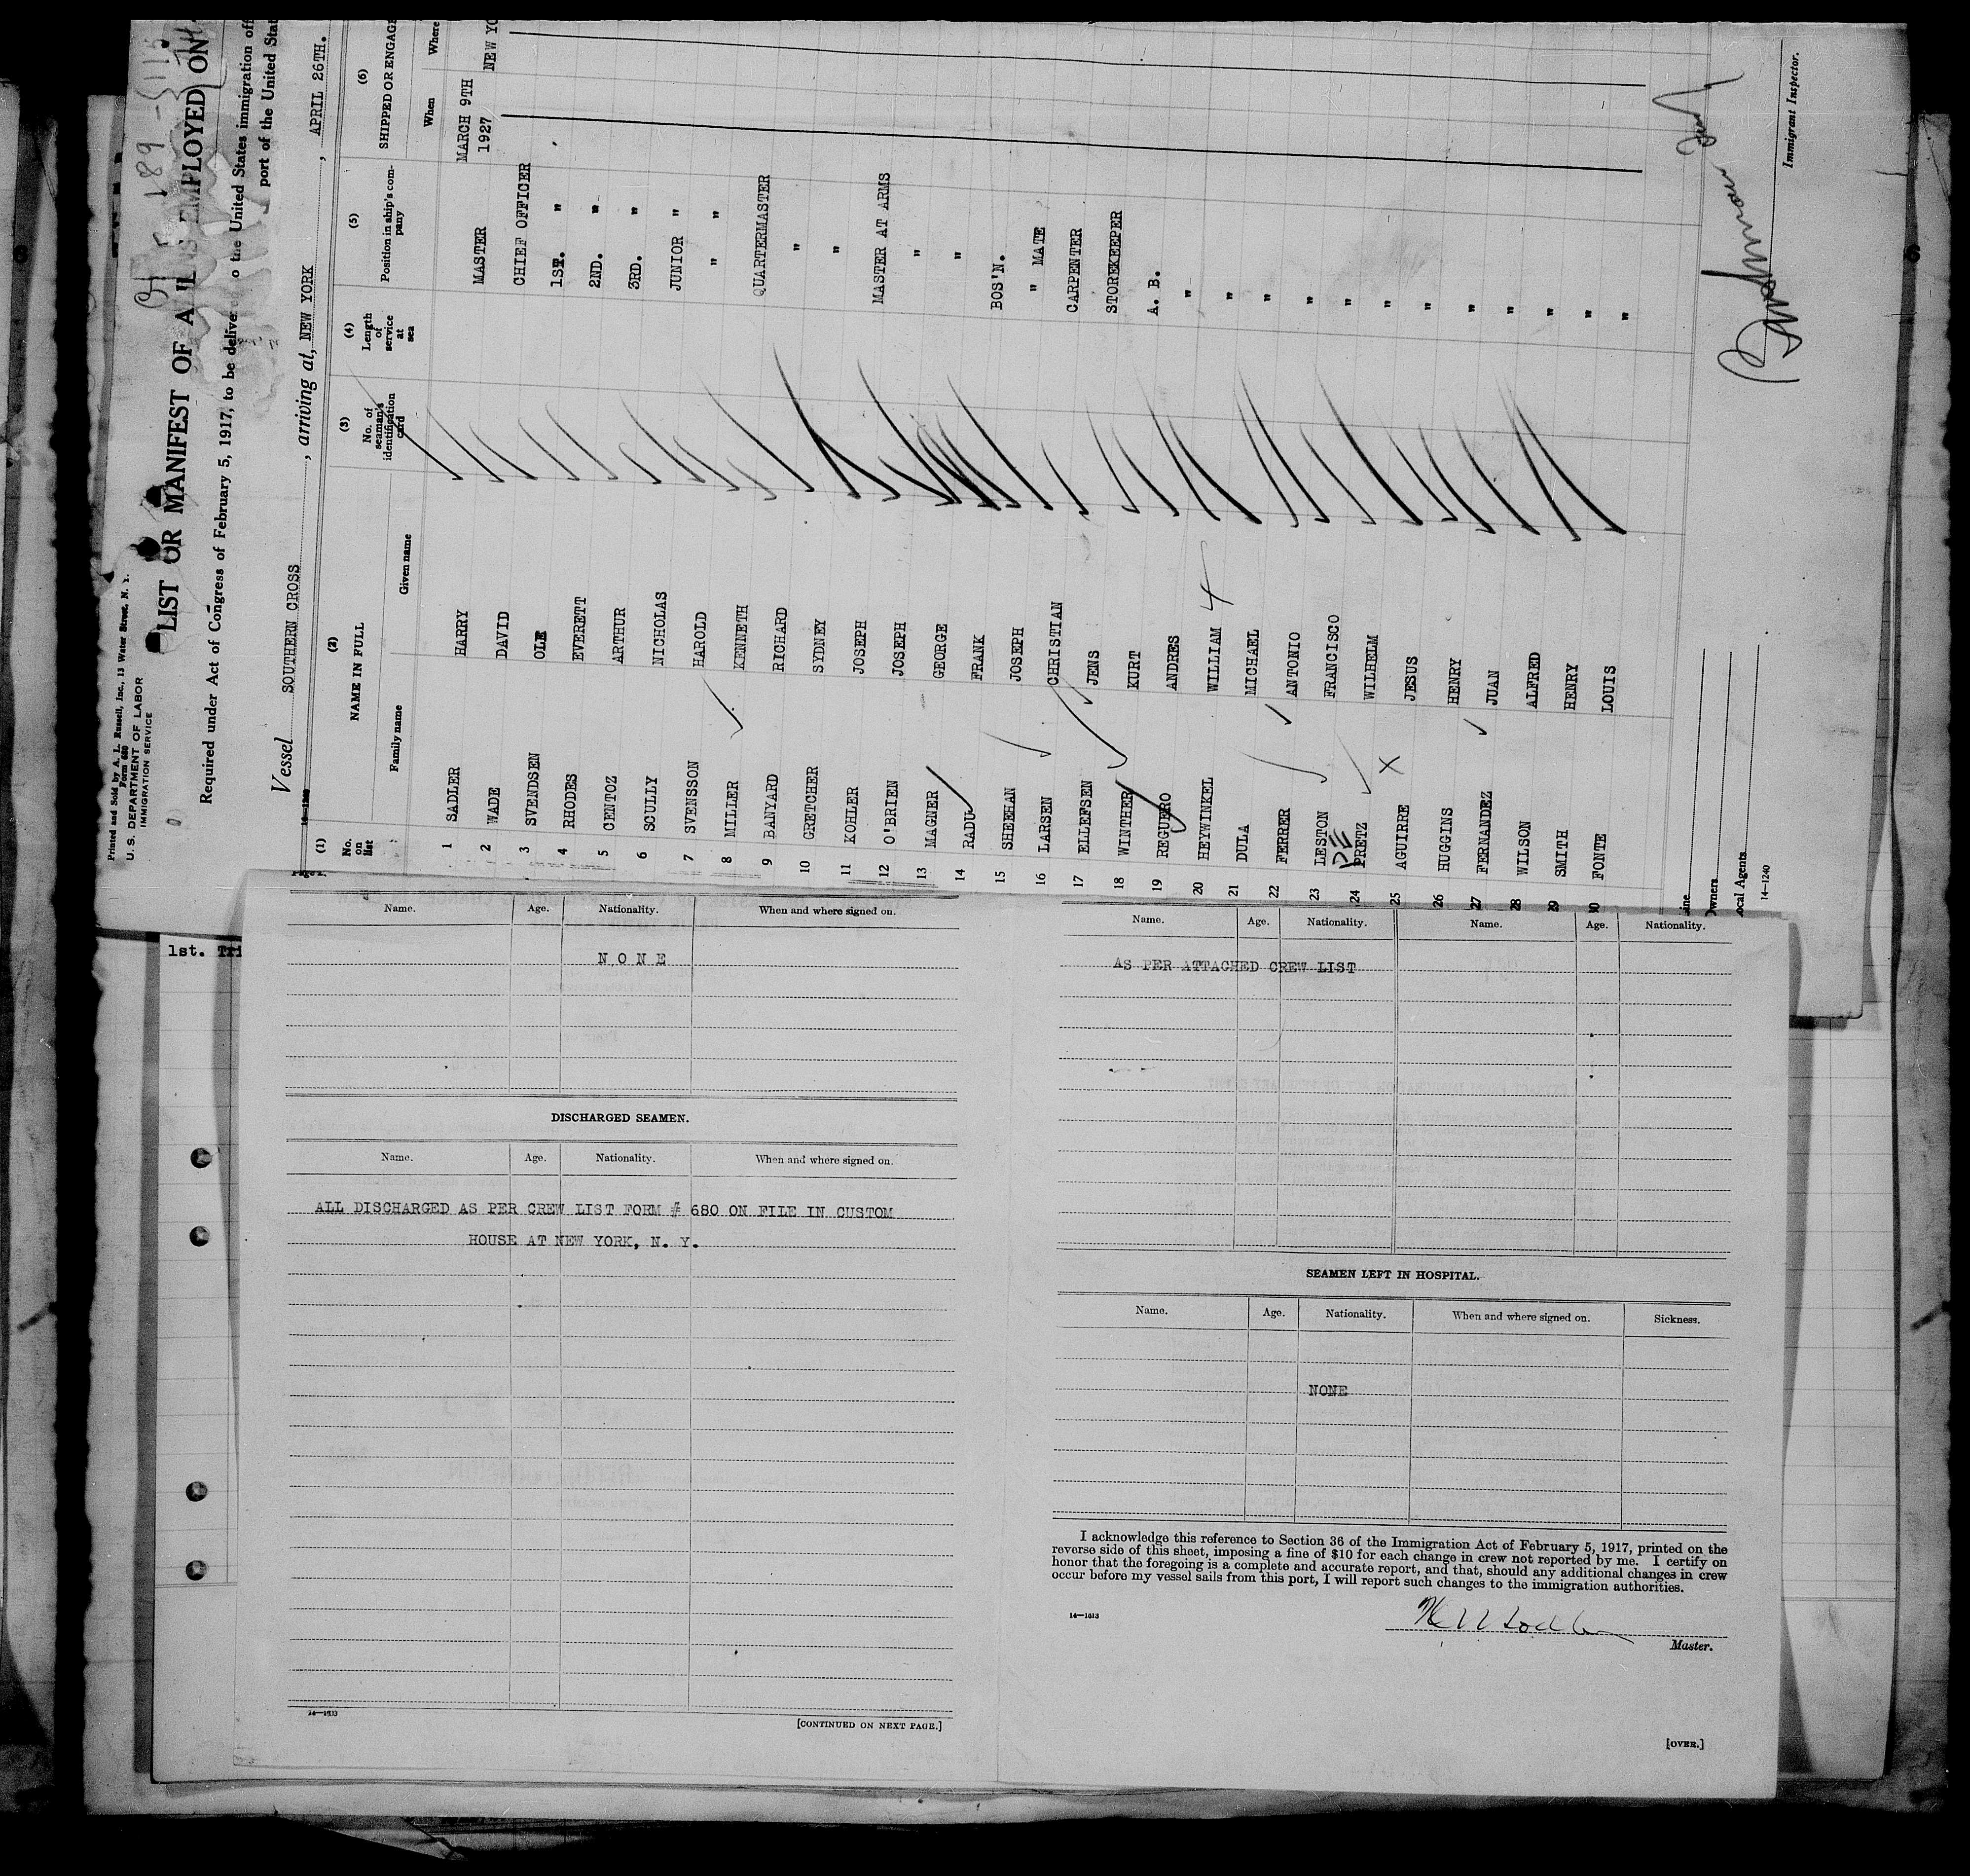 Printed and Sold by A. L. Russell, Inc., 13 Water Street, N. Y.
Form 680
U. S. DEPARTMENT OF LABOR
IMMIGRATION SERVICE
189
LIST OR MANIFEST OF ALIENS EMPLOYED ON
Required under Act of Congress of February 5, 1917, to be delivered to the United States immigration
port of the United
Vessel SOUTHERN CROSS, arriving at, NEW YORK, APRIL 26TH.
(1) (2) (3) (4) (5) (6)
No. on list NAME IN FULL No. of seaman's identification card Length of service at sea Position in ship's company SHIPPED OR
Family name Given name When Where
1 SADLER HARRY MASTER MARCH 9TH 1927 NEW
2 WADE DAVID CHIEF OFFICER
3 SVENDSEN OLE 1ST. "
4 RHODES EVERETT 2ND. "
5 CENTOZ ARTHUR 3RD. "
6 SCULLY NICHOLAS JUNIOR "
7 SVENSSON HAROLD " "
8 MILLER KENNETH QUARTERMASTER
9 BANYARD RICHARD "
10 GRETCHER SYDNEY "
11 KOHLER JOSEPH MASTER AT ARMS
12 O'BRIEN JOSEPH "
13 MAGNER GEORGE "
14 RADU FRANK BOS'N.
15 SHEEHAN JOSEPH " MATE
16 LARSEN CHRISTIAN CARPENTER
17 ELLEFSEN JENS STOREKEEPER
18 WINTHER KURT A. B.
19 REGUERRO ANDRES "
20 HEYWINKEL WILLIAM "
21 DULA MICHAEL "
22 FERRER ANTONIO "
23 LESTON FRANCISCO "
24 PRETZ WILHELM "
25 AGUIRRE JESUS "
26 HUGGINS HENRY "
27 FERNANDEZ JUAN "
28 WILSON ALFRED "
29 SMITH HENRY "
30 FONTE LOUIS "
Owners
Local Agents
14—1240
Immigrant Inspector.
1st.
Name. Age. Nationality. When and where signed on.
NONE
DISCHARGED SEAMEN.
Name. Age. Nationality. When and where signed on.
ALL DISCHARGED AS PER CREW LIST FORM # 680 ON FILE IN CUSTOM
HOUSE AT NEW YORK, N. Y.
[CONTINUED ON NEXT PAGE.]
Name. Age. Nationality. Name. Age. Nationality.
AS PER ATTACHED CREW LIST
SEAMEN LEFT IN HOSPITAL.
Name. Age. Nationality. When and where signed on. Sickness.
NONE
I acknowledge this reference to Section 36 of the Immigration Act of February 5, 1917, printed on the
reverse side of this sheet, imposing a fine of $10 for each change in crew not reported by me. I certify on
honor that the foregoing is a complete and accurate report, and that, should any additional changes in crew
occur before my vessel sails from this port, I will report such changes to the immigration authorities.
14—1513
Master.
[OVER.]